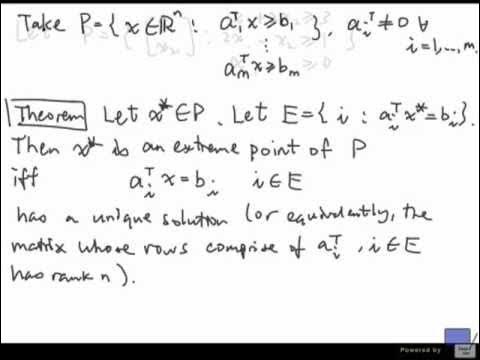 Take P = { x ∈ ℝⁿ : a₁ᵀx ≥ b₁ }, aᵢᵀ ≠ 0 ∀
⋮ i = 1, ..., m.
aₘᵀx ≥ bₘ
Theorem Let x* ∈ P. Let E = { i : aᵢᵀx* = bᵢ }.
Then x* is an extreme point of P
iff aᵢᵀx = bᵢ i ∈ E
has a unique solution (or equivalently, the
matrix whose rows comprise of aᵢᵀ, i ∈ E
has rank n).
Powered by